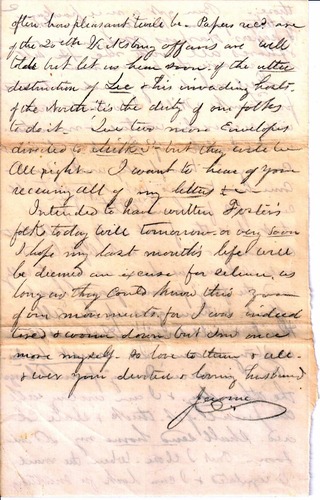 often how pleasant twill be. Papers recd are
of the 20th Vicksburg affairs are well
but let us hear soon of the utter
destruction of Lee & his invading hosts
of the North, 'tis the duty of our folks
to do it. two more Envelopes
directed to but they will be
All right. I want to hear of your
receiving all of my letters
Intended to have written Foster's
folk today will tomorrow or very soon
I hope my last month's life will
be deemed an excuse for silence, as
long as they could know thro' you
of our movements, for I was indeed
tired & worn down, but I'm once
more myself. So love to them & all
& ever your devoted & loving husband
Jerome